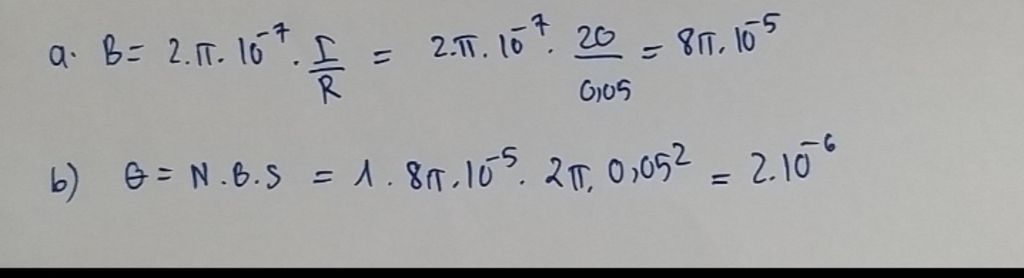 a. B = 2.π.10⁻⁷. I/R = 2.π.10⁻⁷. 20/0,05 = 8π.10⁻⁵
b) Θ = N.B.S = 1. 8π.10⁻⁵. 2π. 0,05² = 2.10⁻⁶